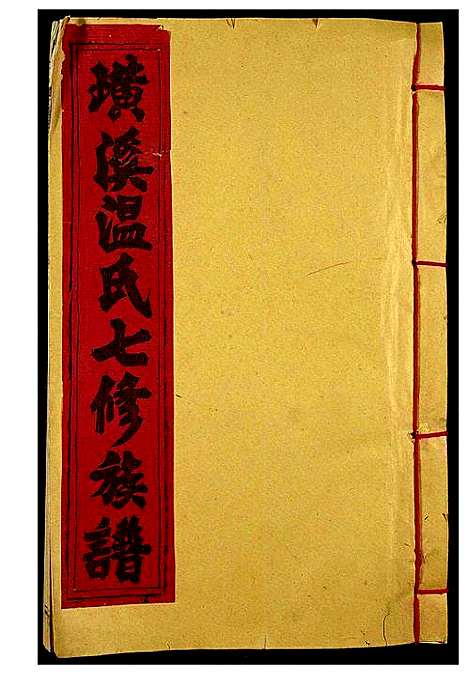 璜溪温氏七修族譜